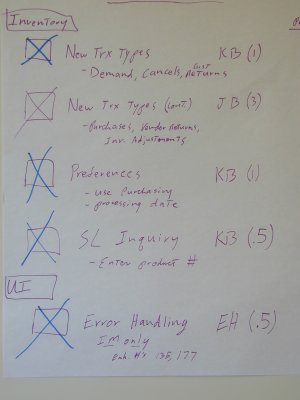 Inventory
New Trx Types KB (1)
- Demand, Cancels, Cust Returns
New Trx Types (cont.) JB (3)
- Purchases, Vendor Returns,
Inv. Adjustments
Preferences KB (1)
- use Purchasing
- processing date
SL Inquiry KB (.5)
- Enter product #
UI
Error Handling EH (.5)
IM only
Enh. #'s 135, 177